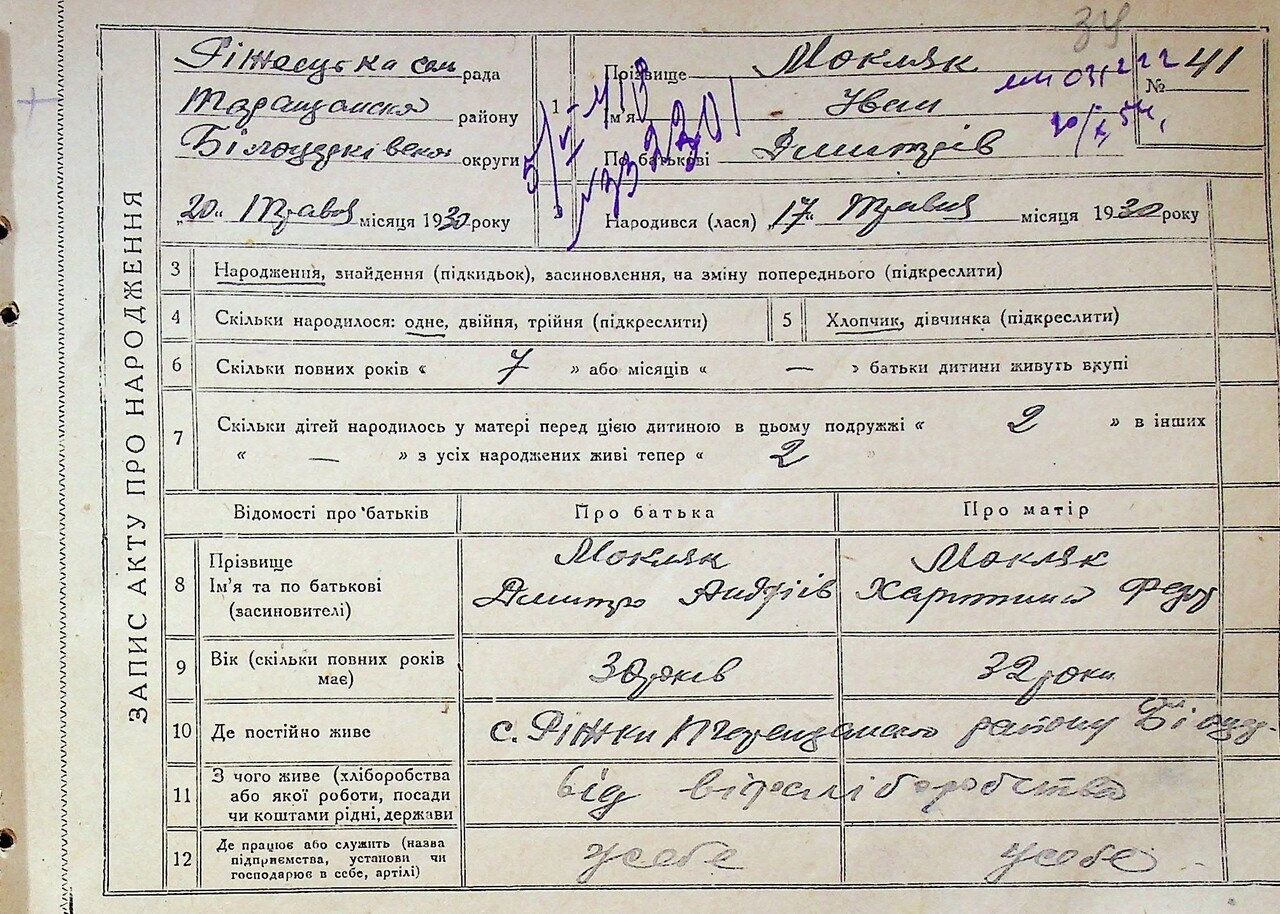 34
ЗАПИС АКТУ ПРО НАРОДЖЕННЯ
рада
Таращанська району
Білоцерківська округи
„20“ Травня місяця 1930 року
1
Прізвище Мокляк
Ім'я Иван
По батькові Дмитрів
Народився (лася) „17“ Травня місяця 1930 року
№ 41
3 Народження, знайдення (підкидьок), засиновлення, на зміну попереднього (підкреслити)
4 Скільки народилося: одне, двійня, трійня (підкреслити) 5 Хлопчик, дівчинка (підкреслити)
6 Скільки повних років « 7 » або місяців « — » батьки дитини живуть вкупі
7 Скільки дітей народилось у матері перед цією дитиною в цьому подружжі « 2 » в інших
« — » з усіх народжених живі тепер « 2 »
Відомості про батьків Про батька Про матір
8 Прізвище Мокляк Мокляк
Ім'я та по батькові Дмитро Андріїв Харитина Федор
(засиновителі)
9 Вік (скільки повних років 30 років 32 роки
має)
10 Де постійно живе с. Ріжки Таращанського району Білоц-
11 З чого живе (хліборобства від хліборобства
або якої роботи, посади
чи коштами рідні, держави
12 Де працює або служить (назва у себе у себе
підприємства, установи чи
господарює в себе, артілі)